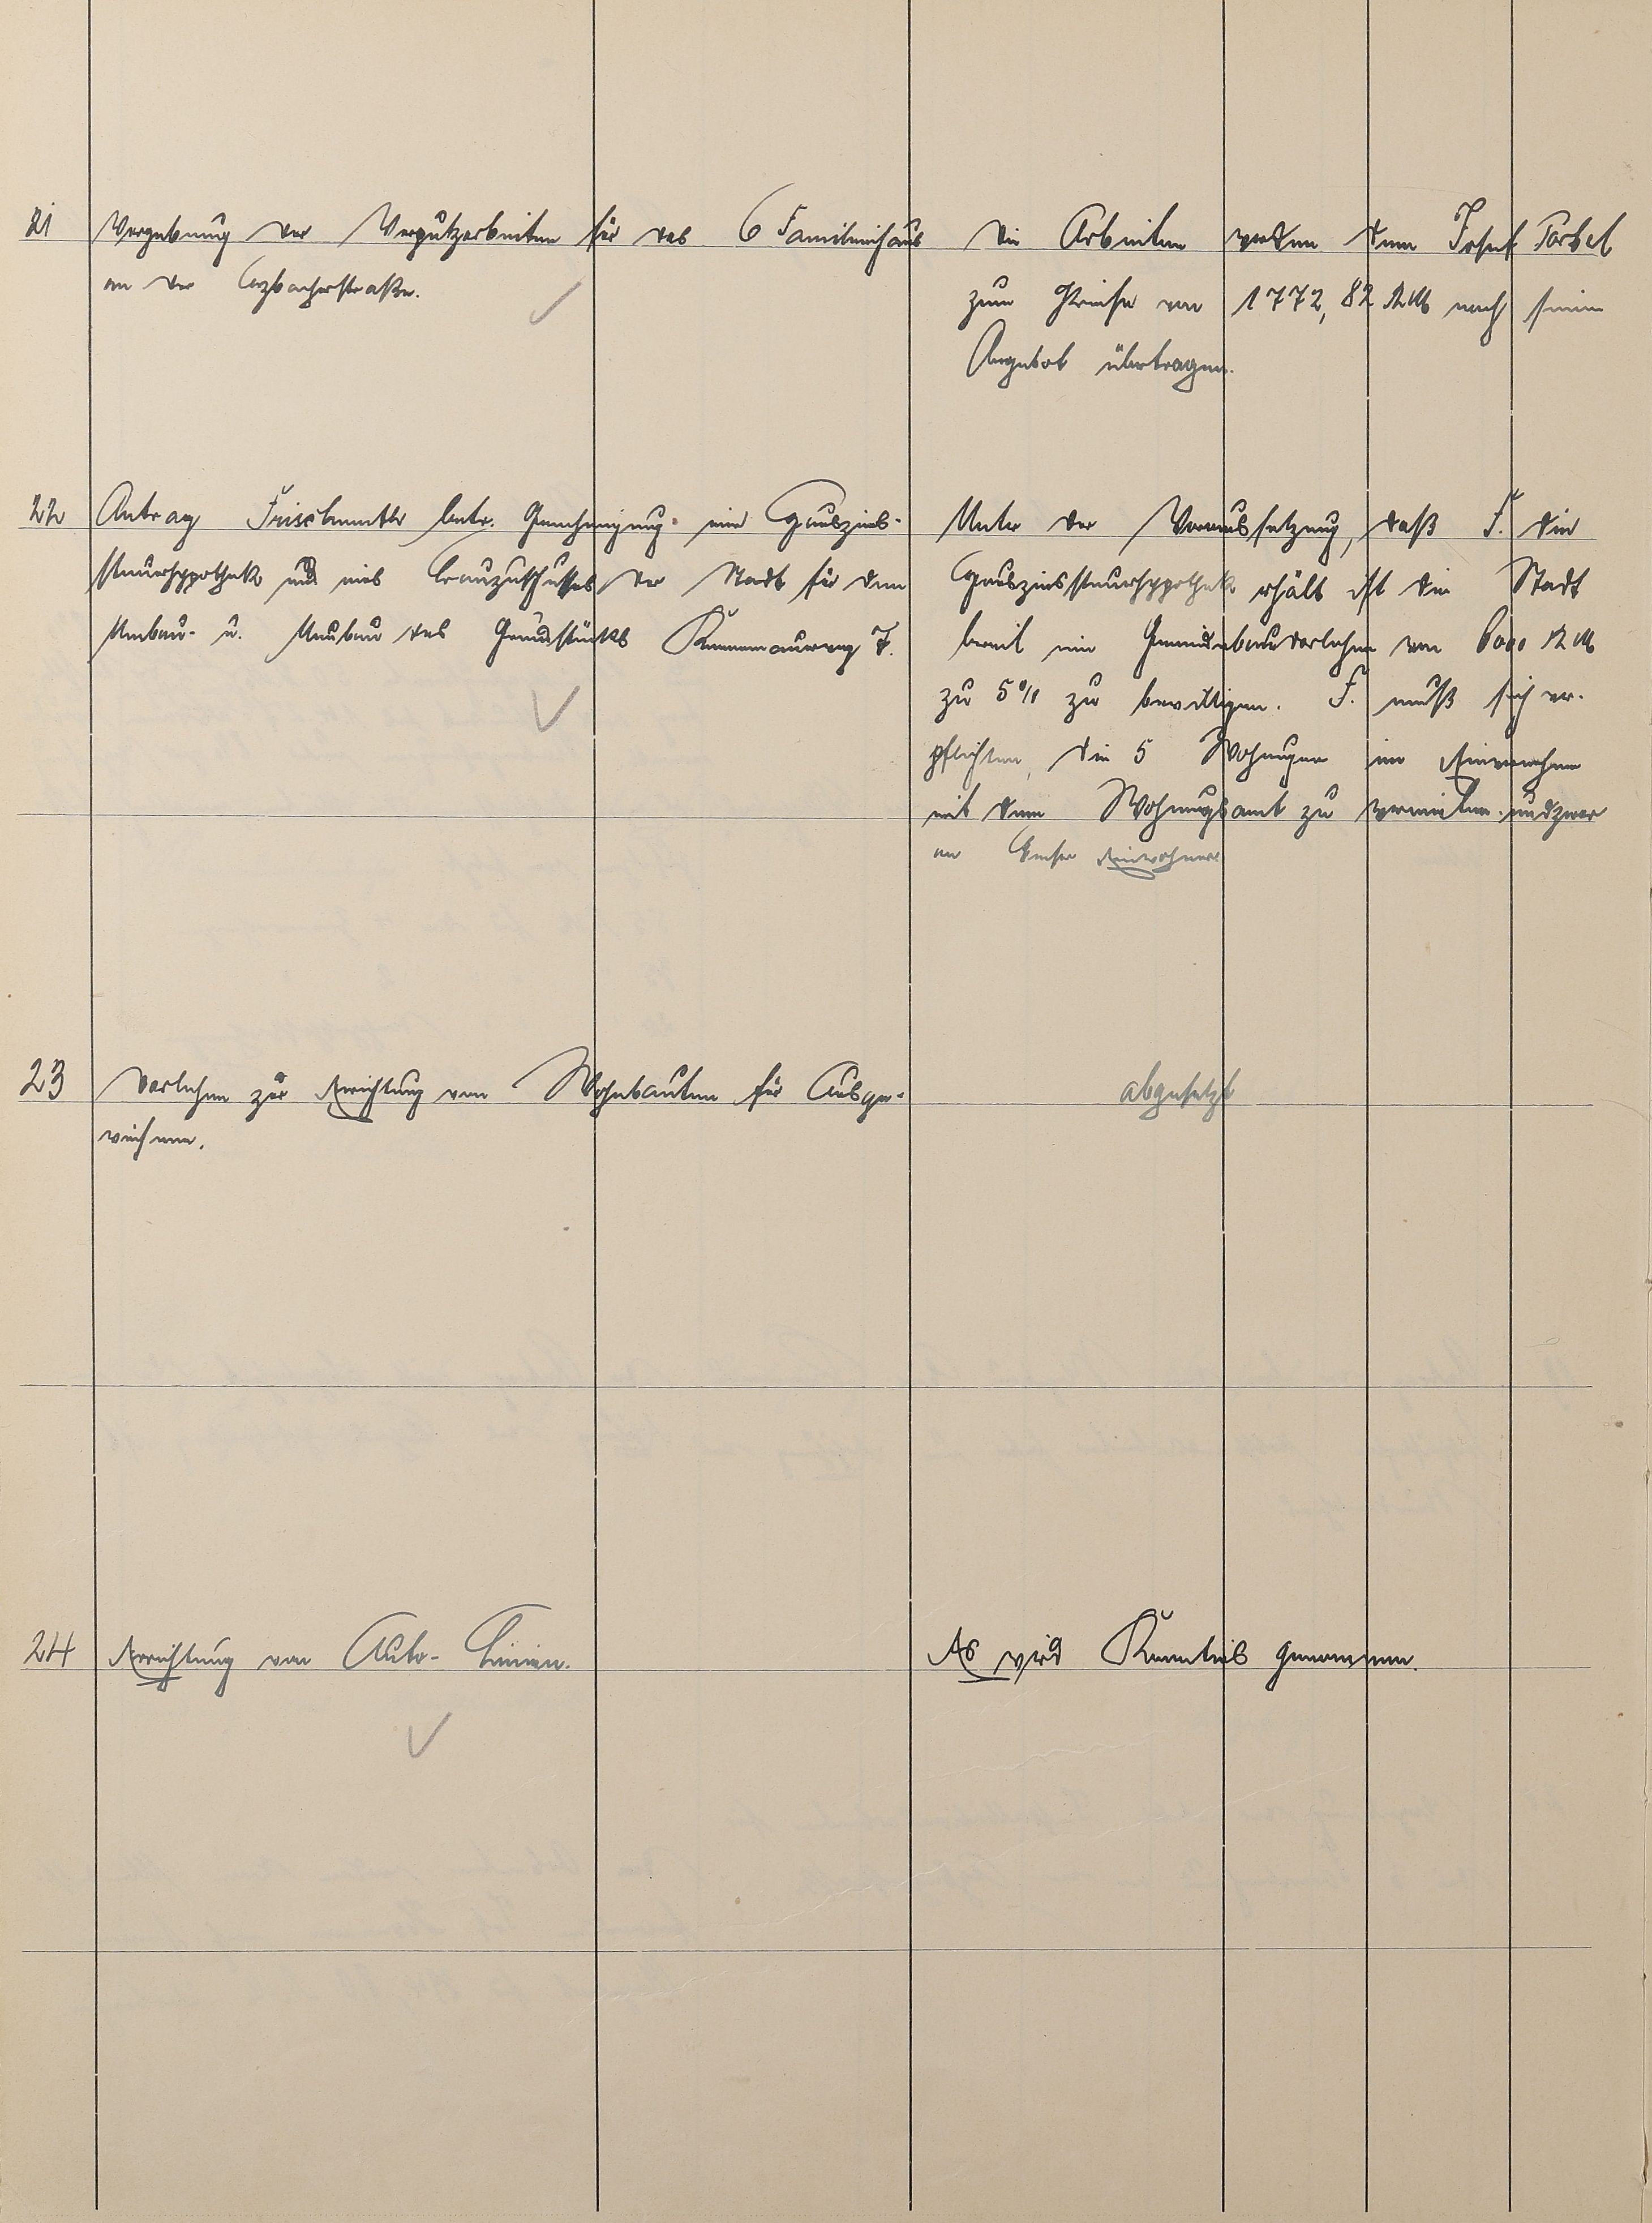 21 Vergebung der Verputzarbeiten für das 6 Familienhaus
an der Arzbacherstraße.
Die Arbeiten werden dem Josef Forbel
zum Preise von 1772,82 RM nach seinem
Angebot übertragen.
22 Antrag betr. Genehmigung einer Hauszins-
steuerhypothek und eines Bauzuschusses der Stadt für den
Umbau- u. Neubau des Grundstücks 7.
Unter der Voraussetzung, daß F. die
Hauszinssteuerhypothek erhält ist die Stadt
bereit ein Gemeindebaudarlehen von 6000 RM
zu 5% zu bewilligen. F. muß sich ver-
pflichten, die 5 Wohnungen im Einvernehmen
mit dem Wohnungsamt zu vermieten undzwar
an Emser Einwohner
23 Darlehen zur Errichtung von Wohnbauten für Ausge-
wiesene.
abgesetzt
24 Errichtung von Auto-Linien.
Es wird Kenntnis genommen.